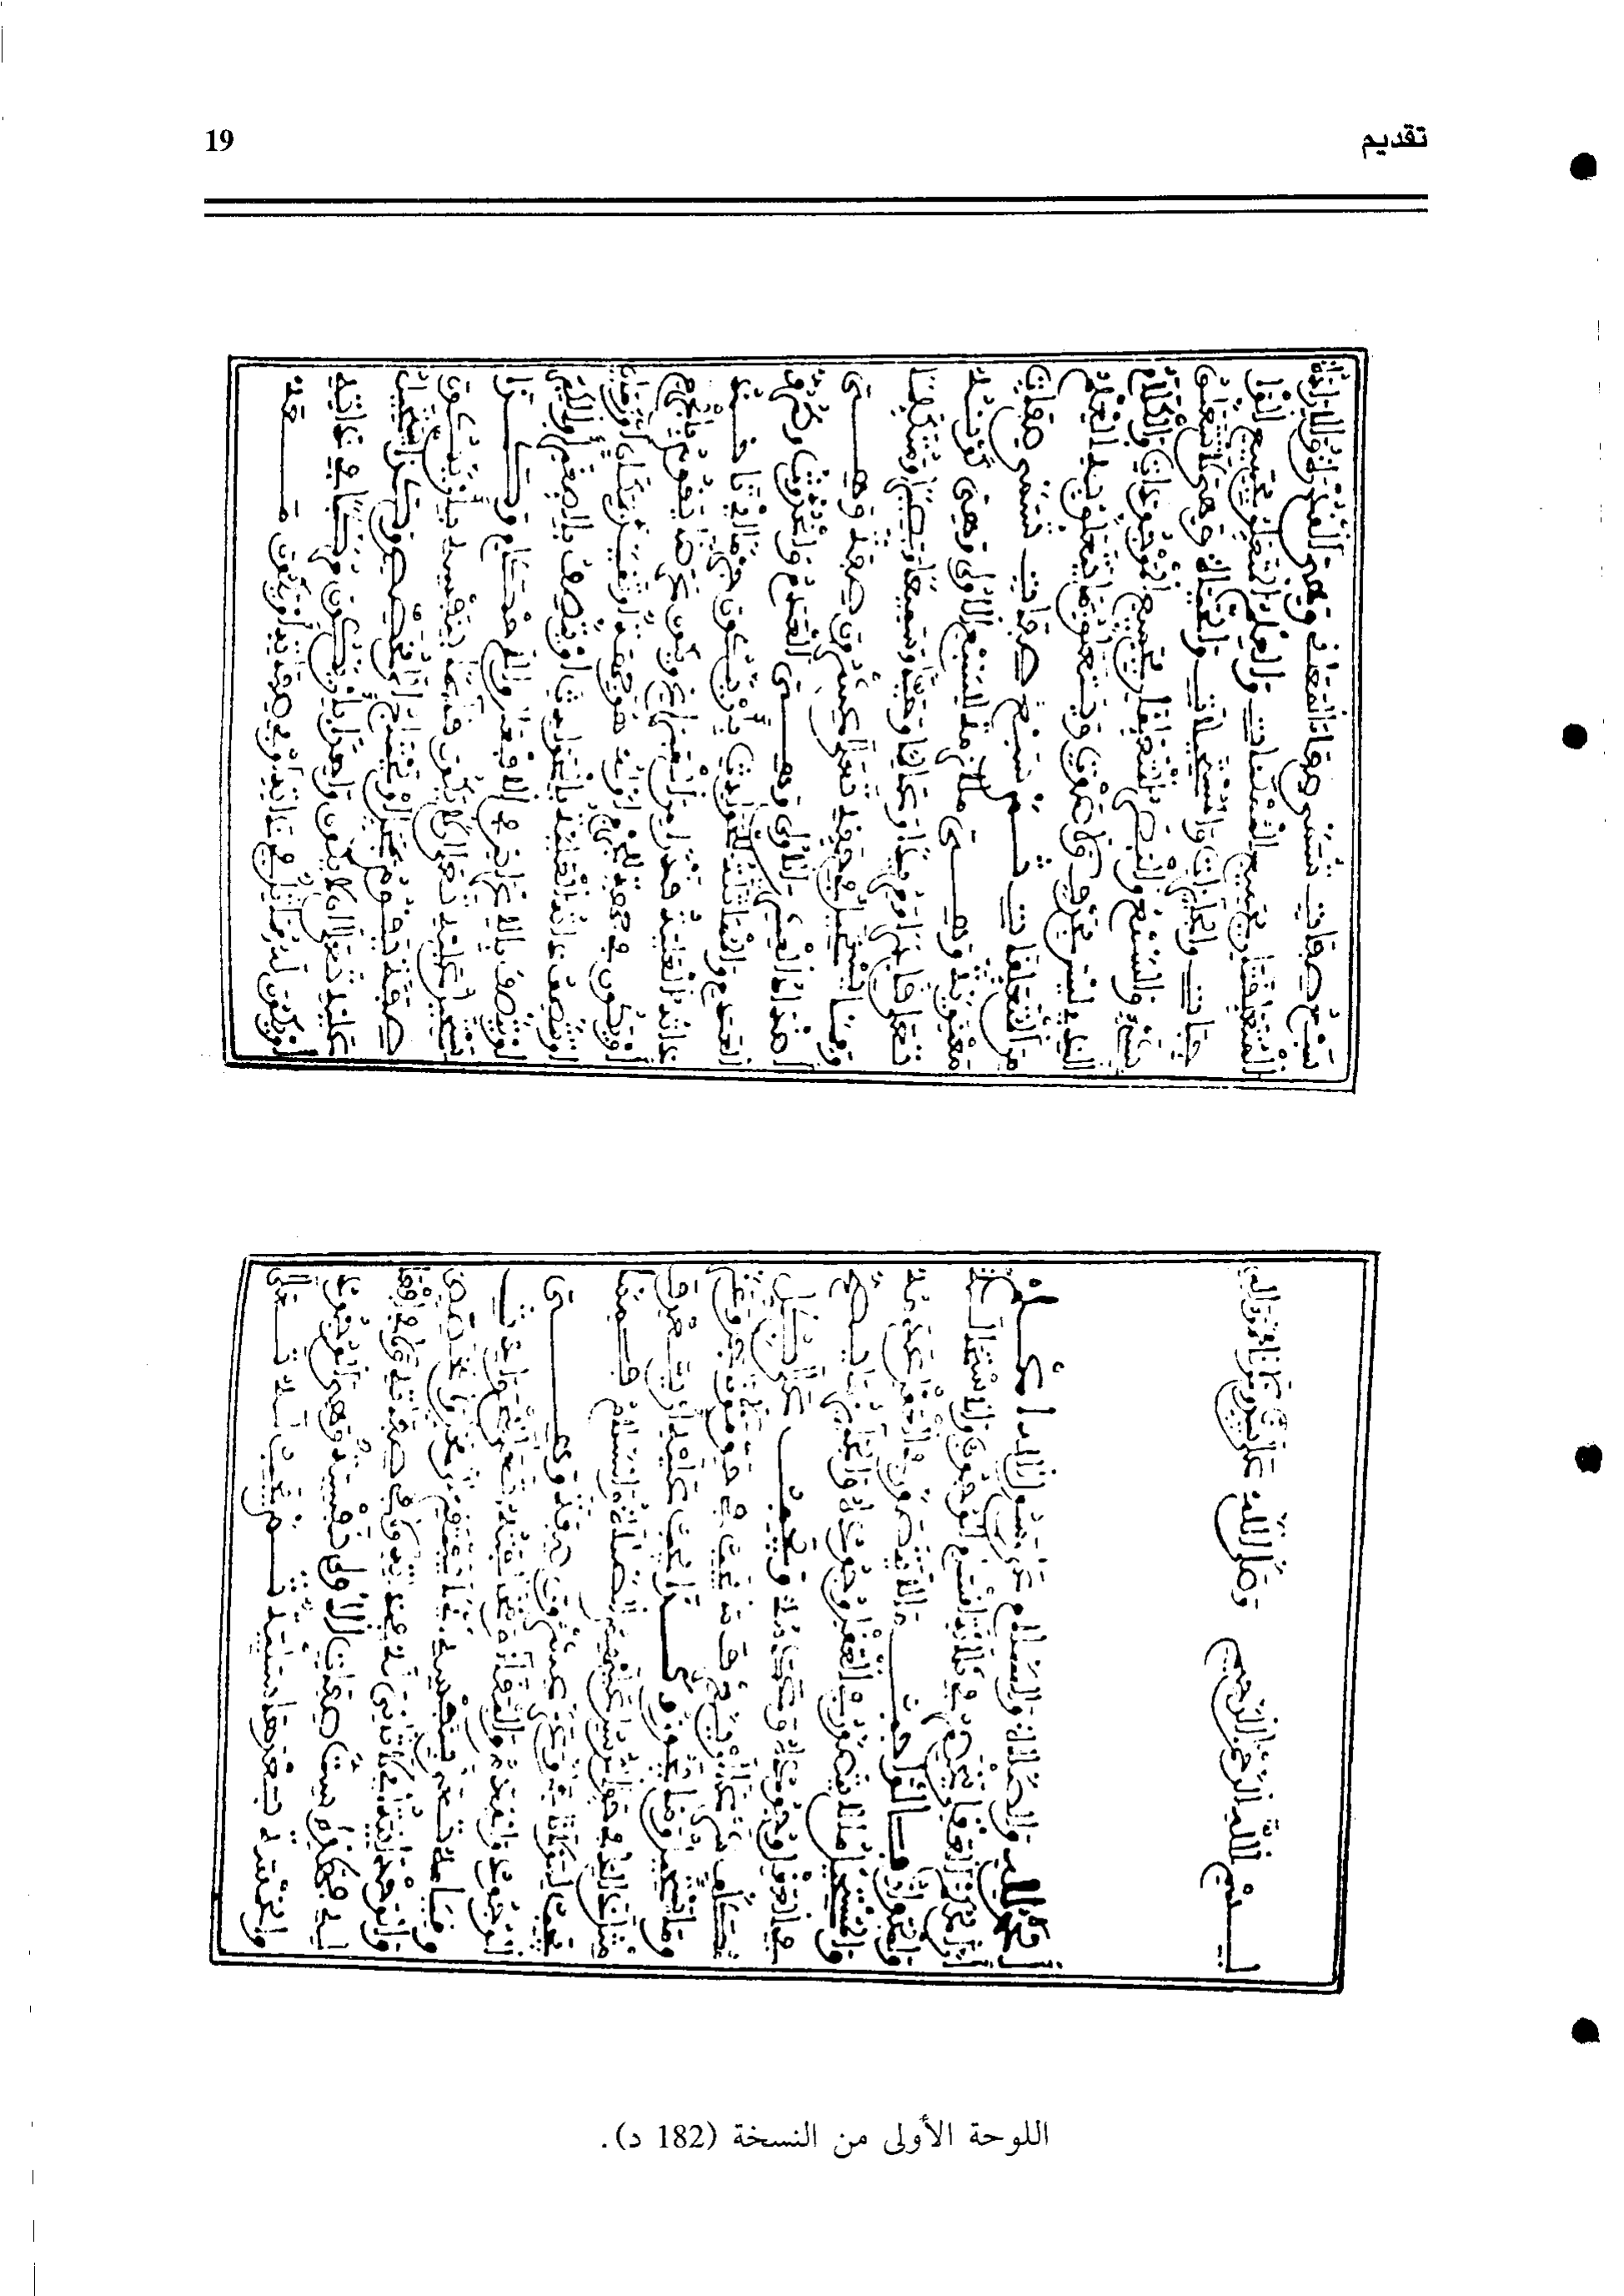 تقديم 19
بسم الله الرحمن الرحيم وصلى الله على سيدنا ومولانا
الحمد لله والصلاة والسلام على رسول الله اعلم
ان الحكم العقلي ينحصر في ثلاثة اقسام الوجوب والاستحالة
والجواز فالواجب ما لا يتصور في العقل عدمه
والمستحيل ما لا يتصور في العقل وجوده والجائز ما يصح
في العقل وجوده وعدمه ويجب على كل
مكلف شرعا ان يعرف ما يجب في حق مولانا جل وعز
وما يستحيل وما يجوز وكذا يجب عليه ان يعرف
مثل ذلك في حق الرسل عليهم الصلاة والسلام فمما
يجب لمولانا جل وعز عشرون صفة وهي
الوجود والقدم والبقاء ومخالفته تعالى للحوادث
وقيامه تعالى بنفسه اي لا يفتقر الى محل ولا مخصص
والوحدانية اي لا ثاني له في ذاته ولا في صفاته ولا في
افعاله فهذه ست صفات الاولى نفسية وهي الوجود
والخمسة بعدها سلبية ثم يجب له تعالى
سبع صفات تسمى صفات المعاني وهي القدرة والارادة
المتعلقتان بجميع الممكنات والعلم المتعلق بجميع الوا
جبات والجائزات والمستحيلات والحياة وهي لا تتعلق
بشيء والسمع والبصر المتعلقان بجميع الموجودات والكلام
الذي ليس بحرف ولا صوت ويتعلق بما يتعلق به العلم
من المتعلقات ثم سبع صفات تسمى صفات
معنوية وهي ملازمة للسبع الاولى وهي كونه
تعالى قادرا ومريدا وعالما وحيا وسميعا وبصيرا ومتكلما
ومما يستحيل في حقه تعالى عشرون صفة وهي
اضداد العشرين الاولى وهي العدم والحدوث وطرو
العدم والمماثلة للحوادث بان يكون جرما اي تاخذ
ذاته العلية قدرا من الفراغ او يكون عرضا يقوم بالجرم
او يكون في جهة للجرم او له هو جهة او يتقيد بمكان او زمان
او تتصف ذاته العلية بالحوادث او يتصف بالصغر او الكبر
او يتصف بالاغراض في الافعال والاحكام وكذا
يستحيل عليه تعالى ان لا يكون قائما بنفسه بان يكون
صفة يقوم بمحل او يحتاج الى مخصص وكذا يستحيل
عليه تعالى ان لا يكون واحدا بان يكون مركبا في ذاته
او يكون له مماثل في ذاته او في صفاته او يكون معه
اللوحة الأولى من النسخة (182 د).